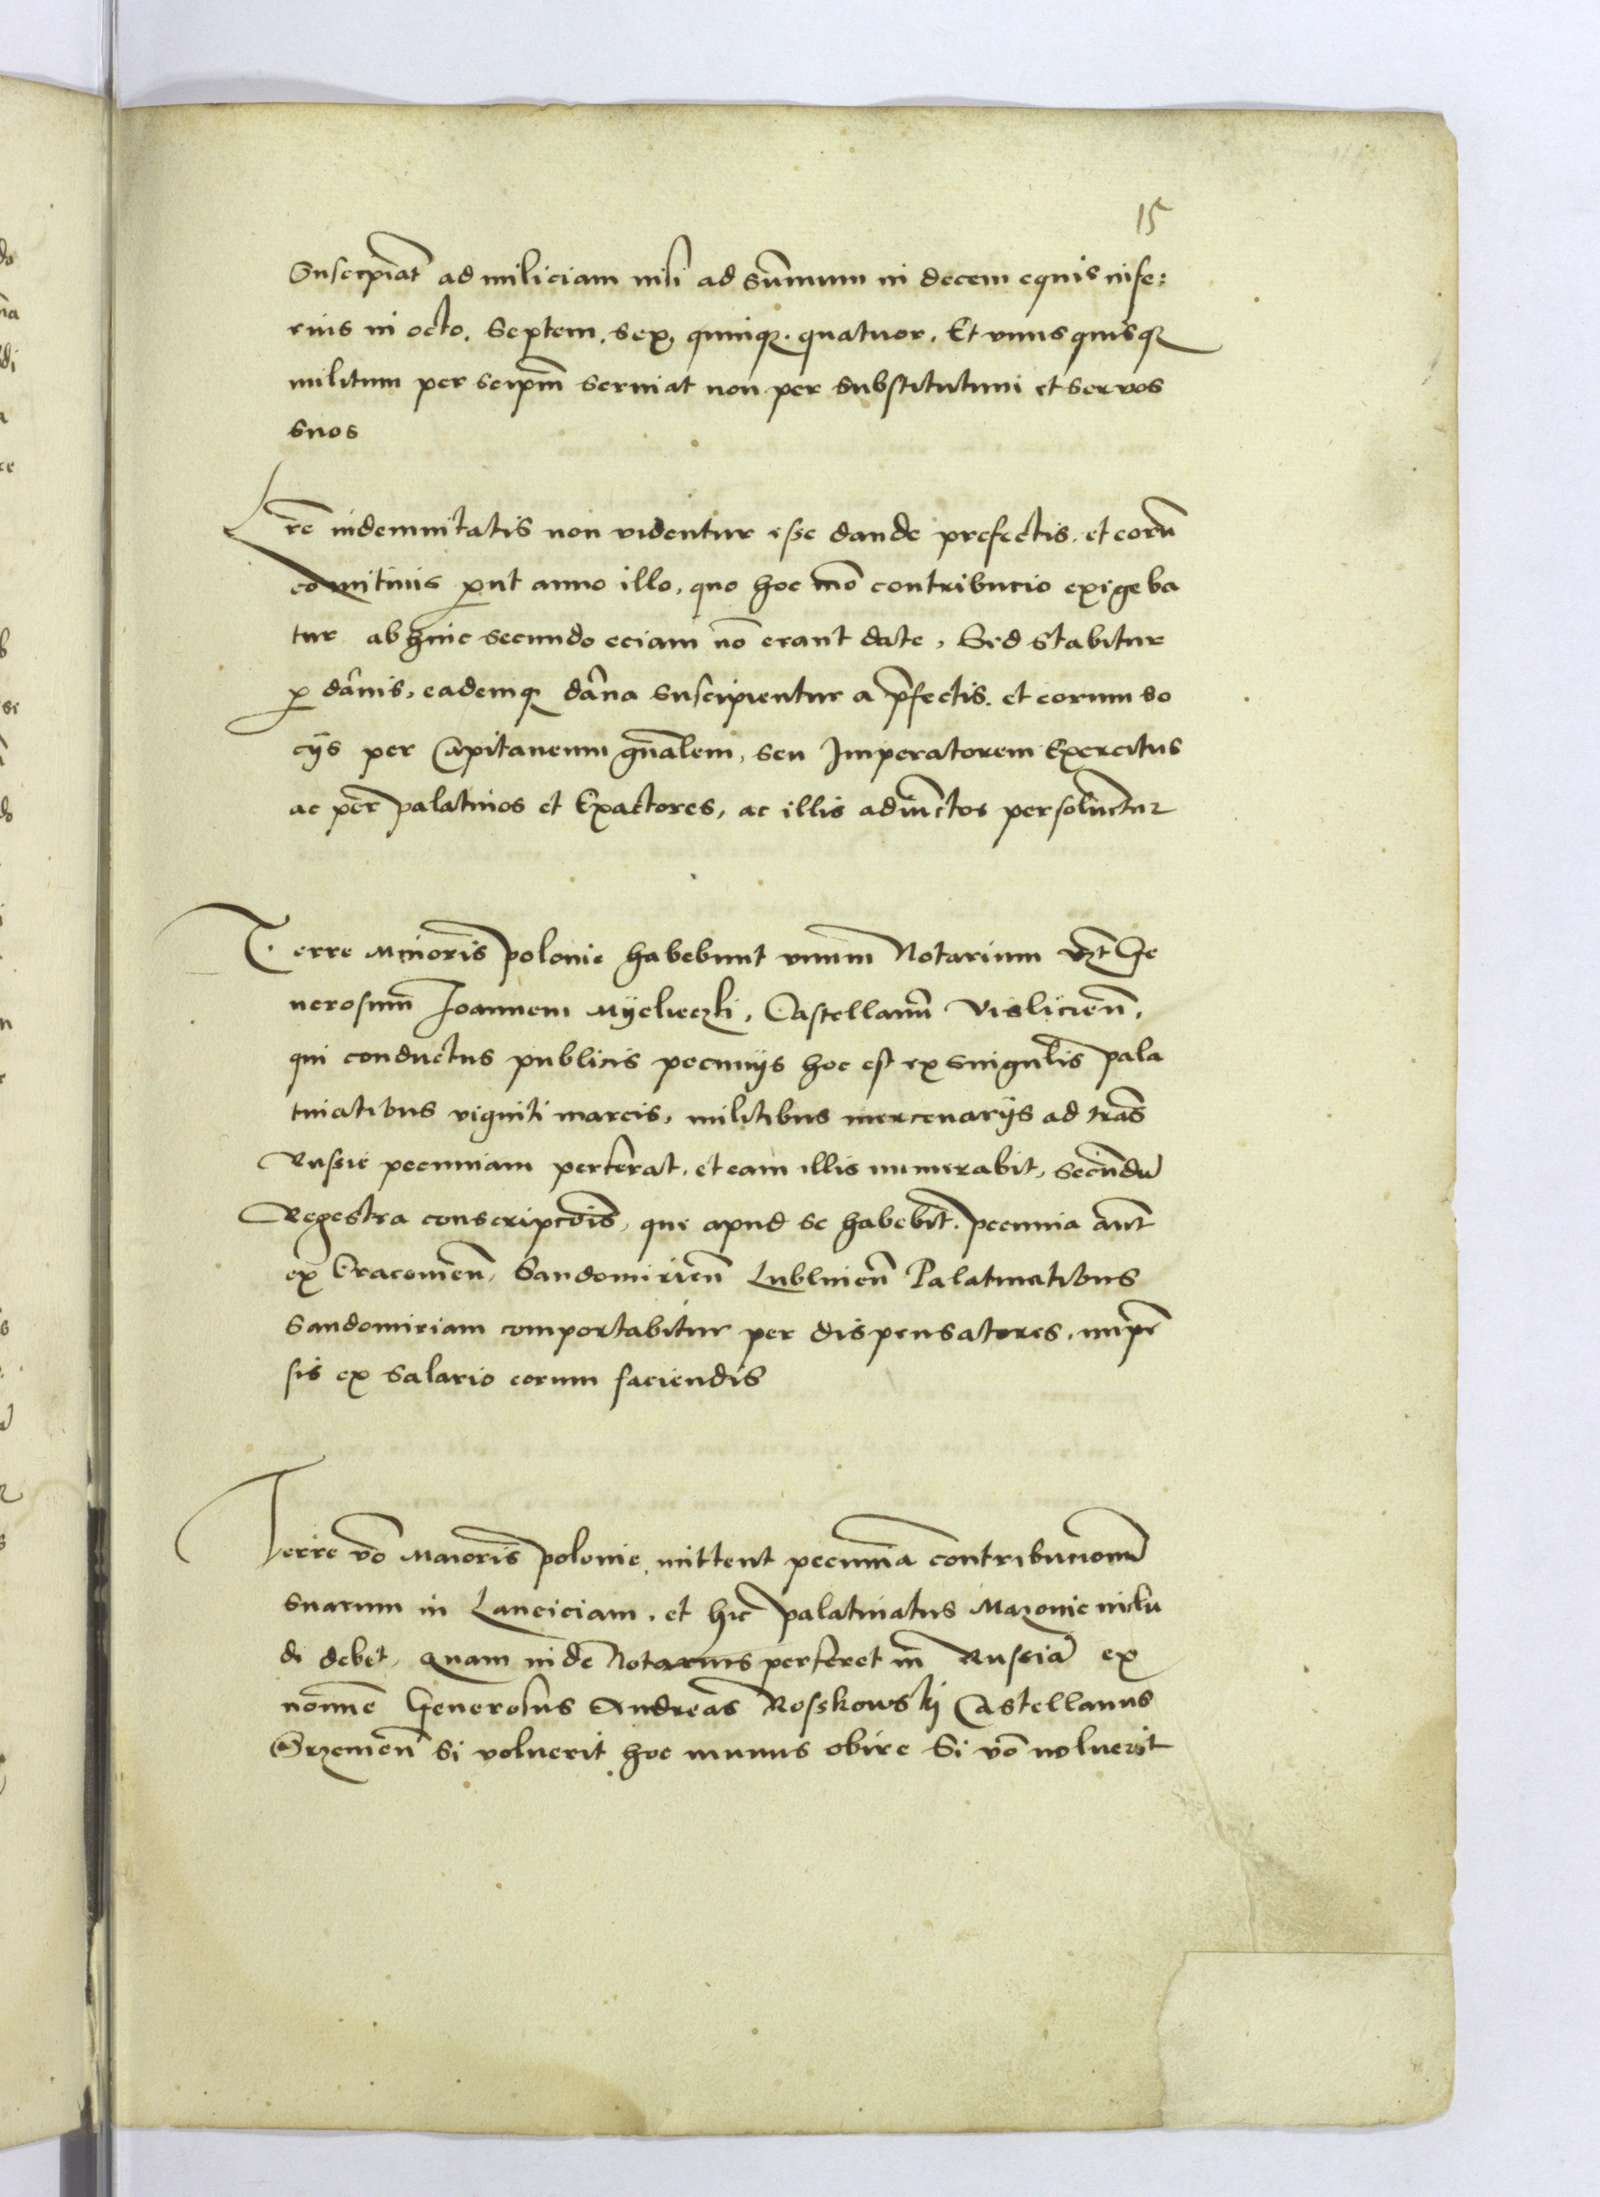 15
Suscipiat ad miliciam nisi ad sūmum in decem equis infe:
rius in octo. Septem. sex, quinqz. quatuor. Et unusquisqz
militum per seipm̄ serviat non per substitutum et servos
suos
Lr̄e indemnitatis non videntur esse dande prefectis. et eorū
comitivis put anno illo, quo hoc mō contribucio exigeba
tur abhinc secundo eciam nō erant date, Sed stabitur
p dānis, eademqz dāna suscipientur a pfectis. et eorum so
cijs per Capitaneum gn̄alem, seu Imperatorem Exercitus
ac per palatinos et Exactores, ac illis adiūctos persolvētur
Terre Minoris polonie habebunt unum Notarium vzt Ge
nerosum Joannem Myeleczki, Castellanū Vislicien̄,
qui conductus publicis pecunijs hoc est ex singulis pala
tinatibus viginti marcis, militibus mercenarijs ad tr̄as
Russie pecuniam perferat, et eam illis numerabit, secūdū
Regestra conscripcōis, que apud se habebit. pecunia aūt
ex Cracovien̄, Sandomirien̄ Lublinen̄ Palatinatibus
Sandomiriam comportabitur per dispensatores, impē
sis ex salario eorum faciendis
Terre vō Maioris polonie, mittent pecuniā contribucionū
suarum in Lanciciam, et hic palatinatus Mazovie inclu
di debet, quam inde Notarius perferet in Russiā ex
nomine Generosus Andreas Rosszkowskj Castellanus
Przemen̄ si voluerit hoc munus obire Si vō noluerit